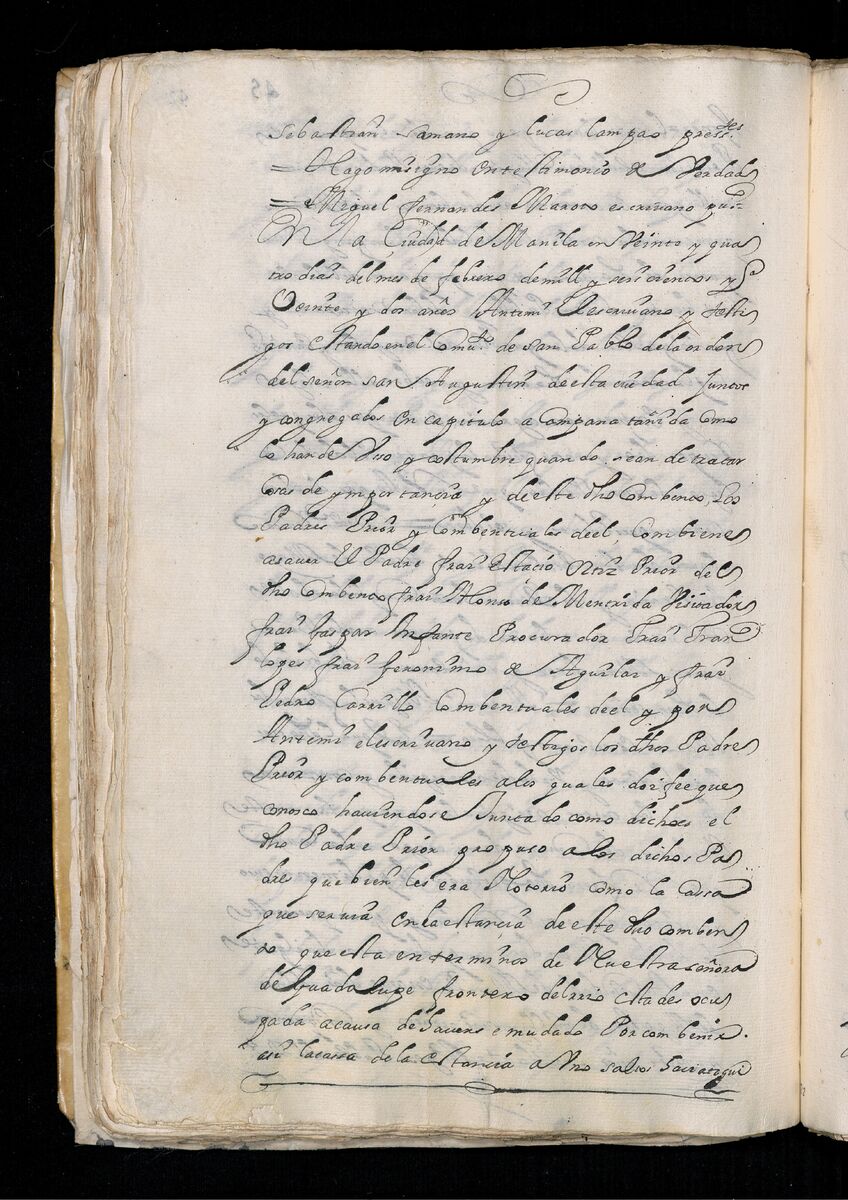 Sebastian Samano y lucas Campao press.tes
= Hago mi signo en testimonio de Verdad
= Miguel fernandes Maroto escriuano pu.co
En la Ciudad de Manila en Veinte y qua
tro dias del mes de febrero de mill y seiscientos y
Veinte y dos años Antemi el escriuano y testi
gos estando en el Comu.to de san Pablo de la orden
del señor san Augustin de esta ciudad Juntos
y congregados en capitulo a Campana tañida como
lo han de Vso y costumbre quando sean de tratar
cosas de ymportançia y de este dho Combento, Los
Padres Prior y Combentuales de el, Combiene
asauer El Padre fray Estacio Ortiz Prior del
dho Combento fray Alonso de Mentrida Visitador
fray gaspar Infante Procurador Fray Fran.co
lopes fray geronimo de Aguilar y fray
Pedro Carrillo Combentuales de el y por
Antemi el escriuano y testigos los dhos Padre
Prior y combentuales a los quales doi fee que
conosco hauiendose Juntado como dicho es el
dho Padre Prior propuso a los dichos Pa
dres que bien les era Notorio como la cassa
que seruia en la estancia de este dho comben
to que esta en terminos de Nuestra señora
de guadalupe frontero del rio esta desocu
pada a causa de hauerse mudado Por combenir
assi la cassa de la estancia a Vno